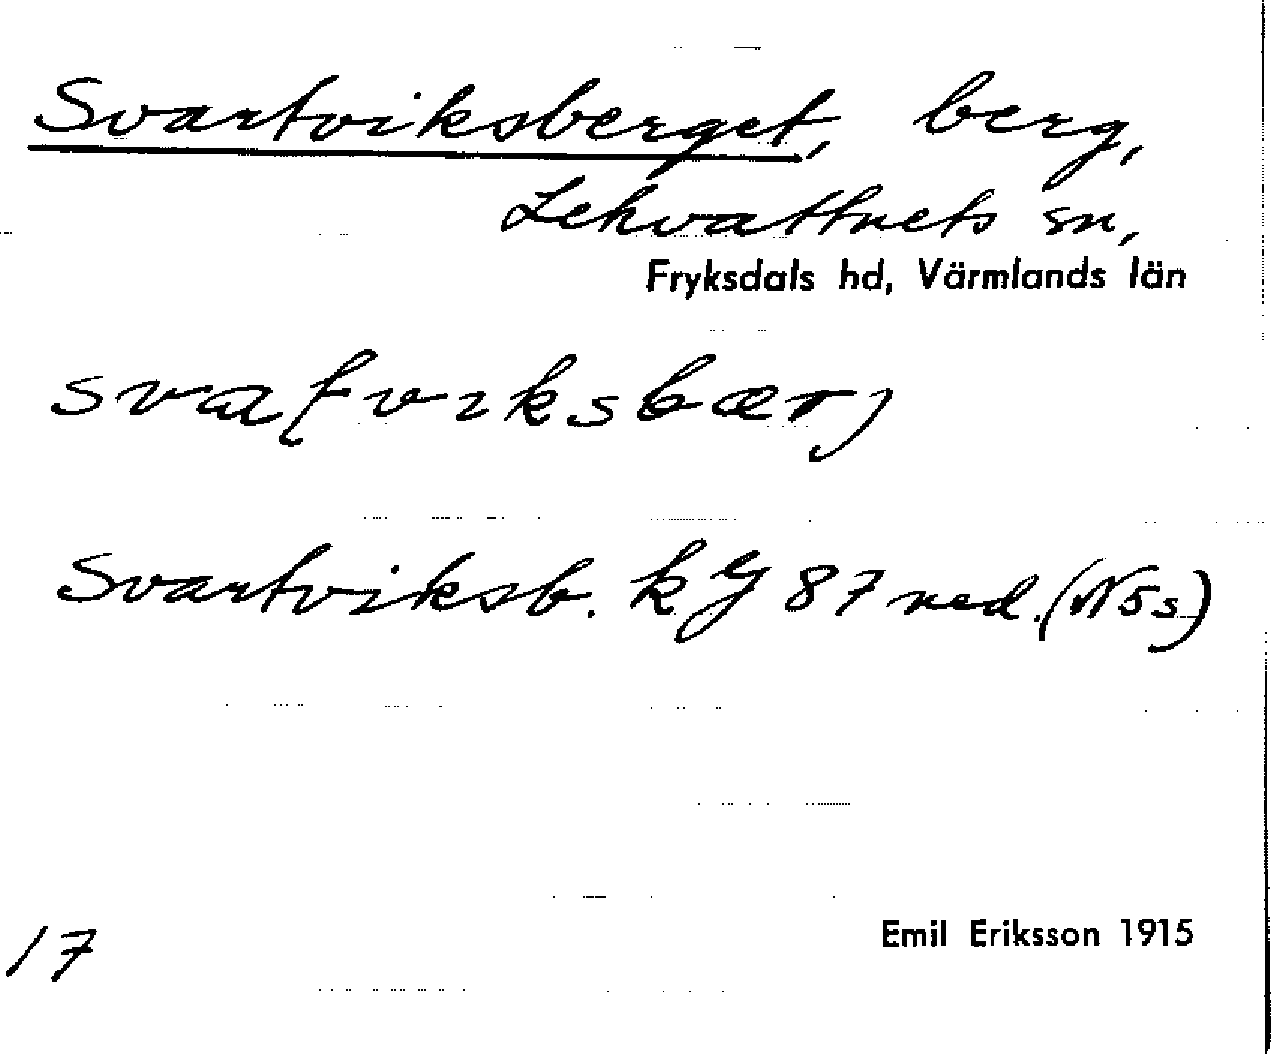 Svartviksberget, berg,
Lekvattnets sn,
Fryksdals hd, Värmlands län
svaʈviksbærj
Svartviksb. k 87 ned. (N5s)
17
Emil Eriksson 1915